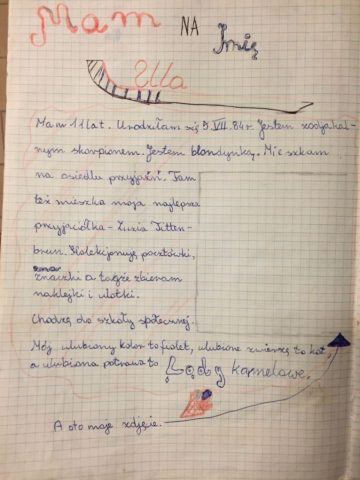 Mam NA Imię
Ulla
Mam 11 lat. Urodziłam się 5 VII. 84 r. Jestem zodjakal-
nym skorpionem. Jestem blondynką. Mieszkam
na osiedlu przyjaźń. Tam
też mieszka moja najlepsza
przyjaciółka - Zuzia Titten-
brun. Kolekcjonuję pocztówki,
znaczki a także zbieram
naklejki i ulotki.
Chodzę do szkoły społecznej.
Mój ulubiony kolor to fiolet, ulubione zwierzę to kot,
a ulubiona potrawa to Lody karmelowe.
A oto moje zdjęcie.